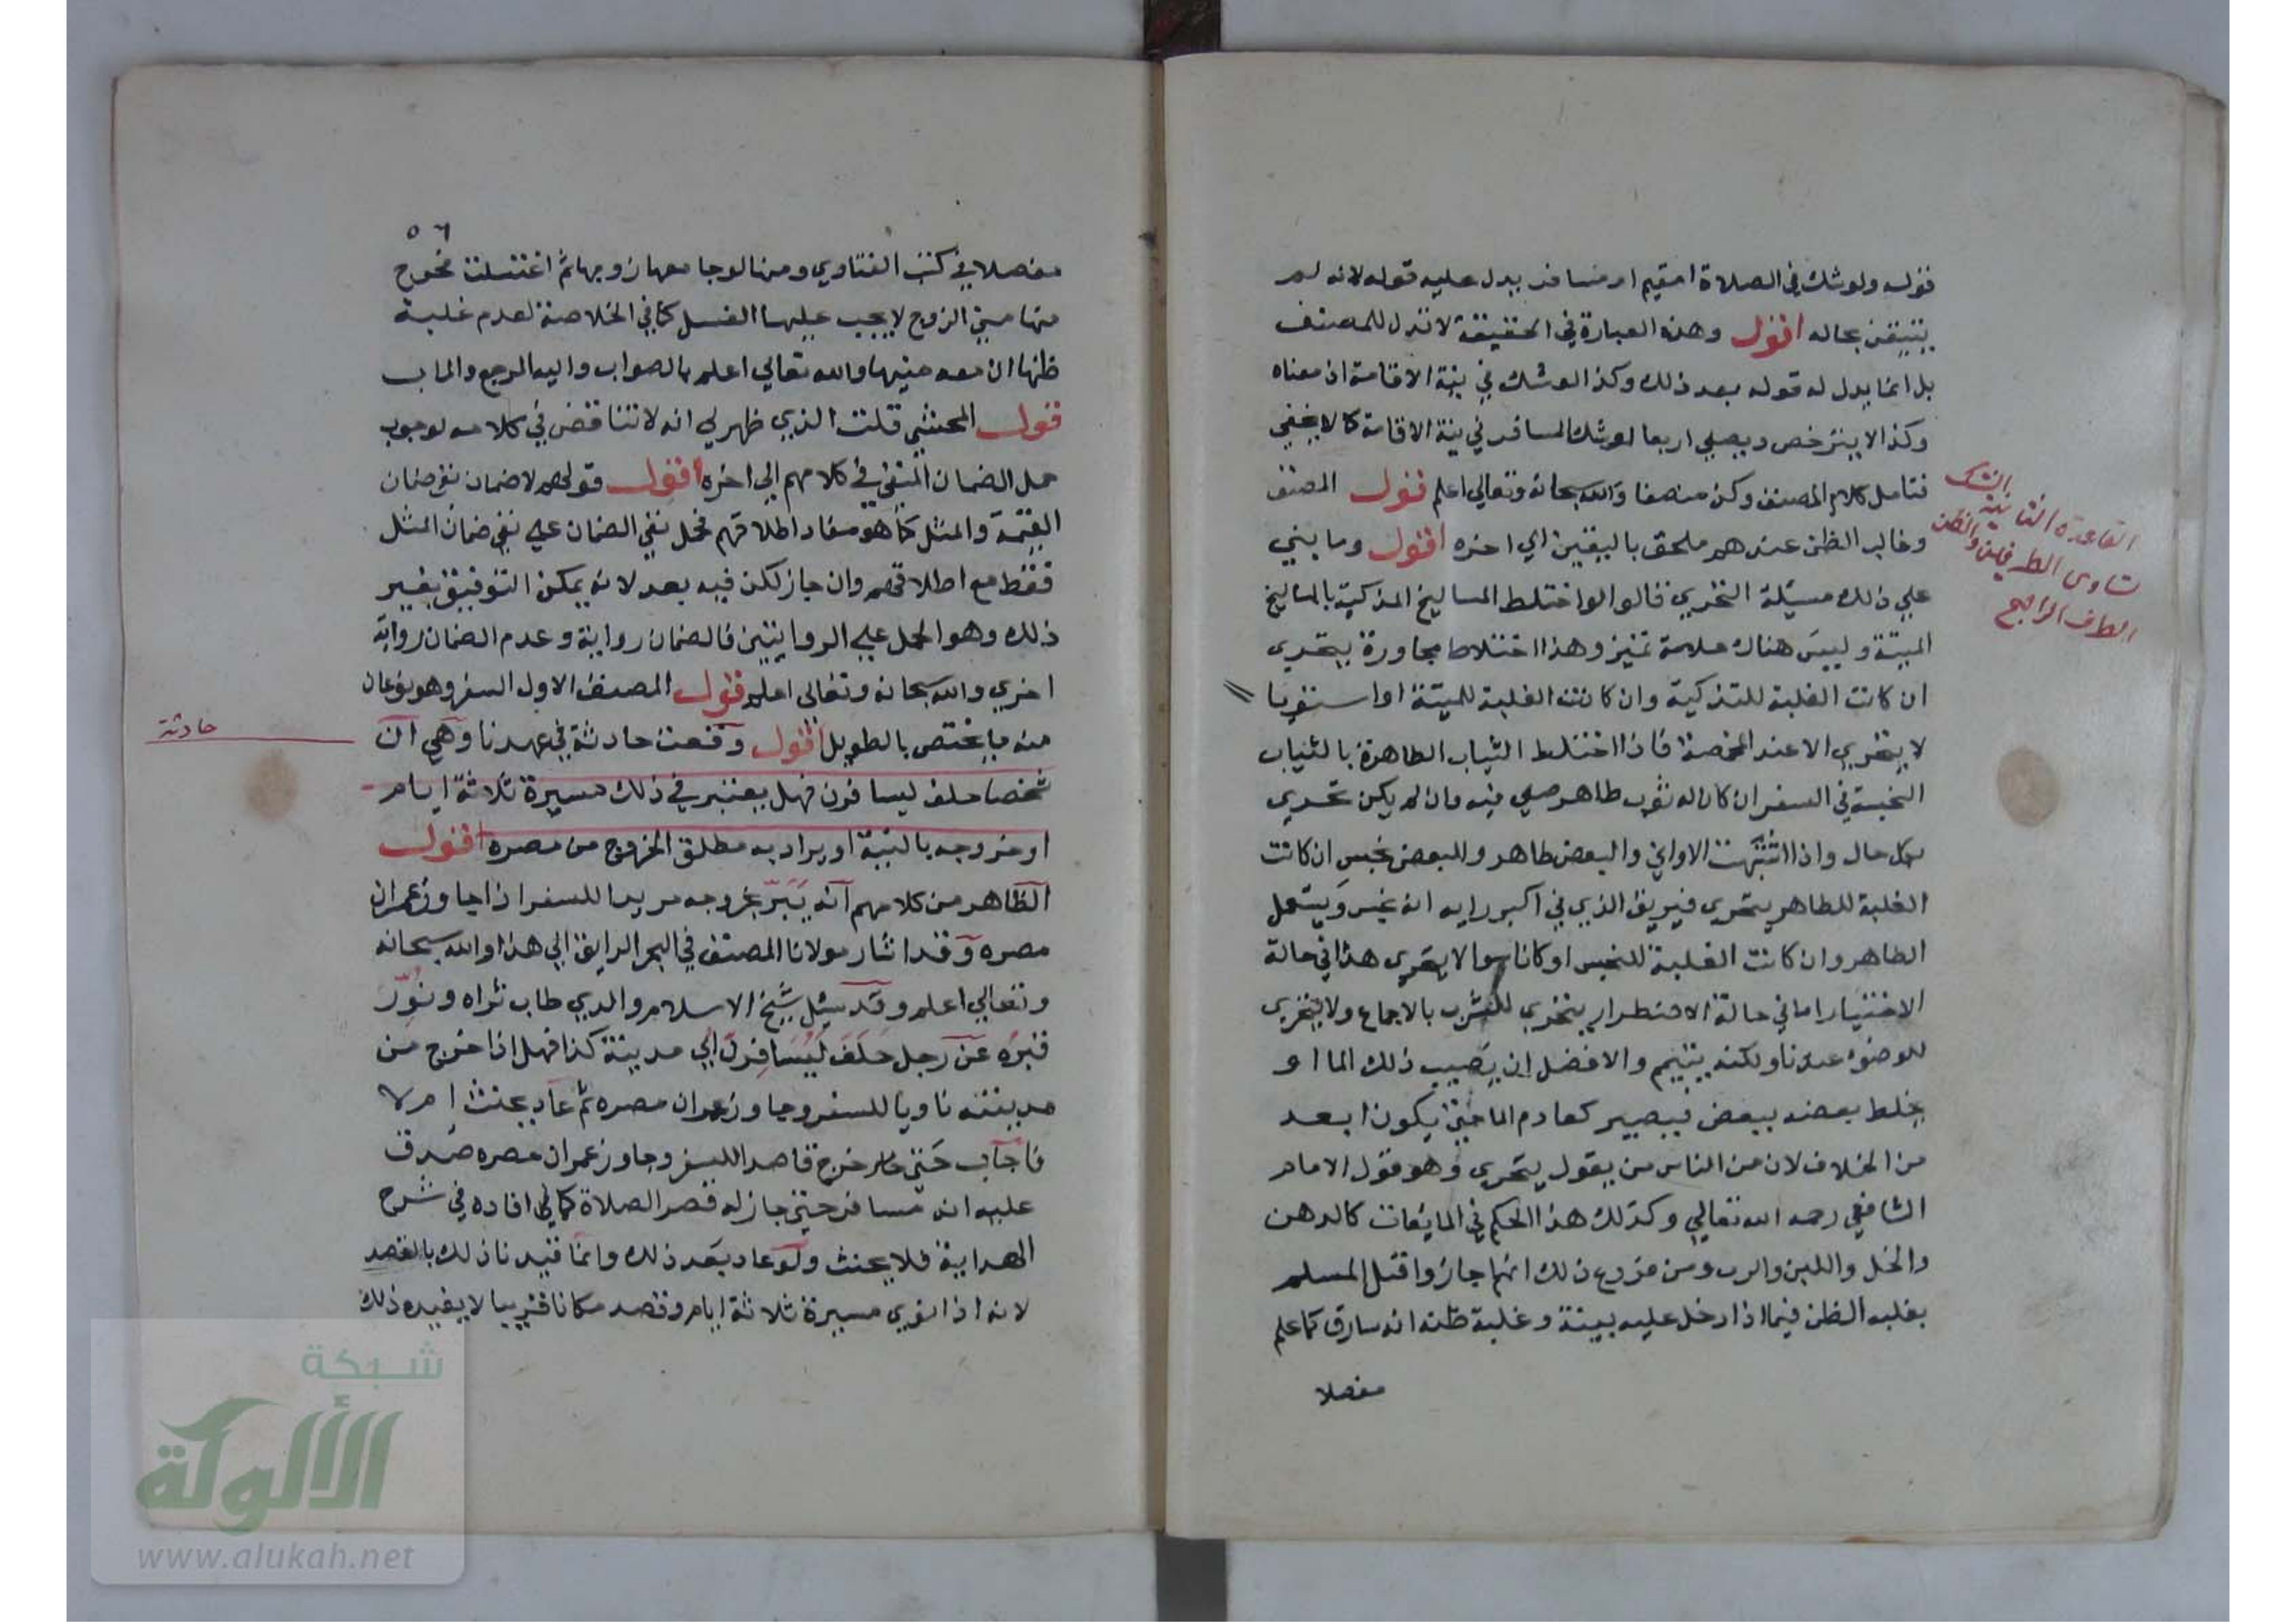 قوله ولو شك في الصلاة امقيم ام مسافر يدل عليه قوله لانه لم
يتيقن بحاله اقول وهذه العبارة في الحقيقة لا تدل للمصنف
بل انما يدل له قوله بعد ذلك وكذا لو شك في نية الاقامة اذ معناه
وكذا لا يترخص ويصلي اربعا لو شك المسافر في نية الاقامة كما لا يخفى
فتامل كلام المصنف وكن منصفا والله سبحانه وتعالى اعلم قوله المصنف
وغالب الظن عندهم ملحق باليقين الي اخره اقول وما بني
علي ذلك مسئلة التحري قالوا لو اختلط المساليخ المذكية بالمساليخ
الميتة وليس هناك علامة تميز وهذا اختلاط مجاورة يتحرى
ان كانت الغلبة للتذكية وان كانت الغلبة للميتة او استويا
لا يتحري الا عند المخمصة فاذا اختلط الثياب الطاهرة بالثياب
النجسة في السفر ان كان له ثوب طاهر صلى فيه وان لم يكن تحرى
بكل حال واذا اشتبهت الاواني والبعض طاهر والبعض نجس ان كانت
الغلبة للطاهر يتحرى فيريق الذي في اكبر رايه انه نجس ويستعمل
الطاهر وان كانت الغلبة للنجس او كانا سوا لا يتحرى هذا في حالة
الاختيار اما في حالة الاضطرار يتحري للشرب بالاجماع ولا يتحرى
للوضوء عندنا ولكنه يتيمم والافضل ان يصيب ذلك الما او
يخلط بعضه ببعض فيصير كعادم الما حتى يكون ابعد
من الخلاف لان من الناس من يقول يتحرى وهو قول الامام
الشافعي رحمه الله تعالي وكذلك هذا الحكم في المايعات كالدهن
والخل واللبن والرب ومن فروع ذلك انهم جازوا قتل المسلم
بغلبه الظن فيما اذا دخل عليه بيته وغلبة ظنه انه سارق كما علم
مفصلا
القاعدة الثانية الشك
تساوى الطرفين والظن
الطرف الراجح
٥٦
مفصلا في كتب الفتاوي ومنها لو جامعها زوجها ثم اغتسلت فخرج
منها مني الزوج لا يجب عليها الغسل كما في الخلاصة لعدم غلبة
ظنها ان معه منيها والله تعالي اعلم بالصواب واليه المرجع والماب
قول المحشي قلت الذي ظهر لي انه لا تناقض في كلامه لوجوب
حمل الضمان المنفي في كلامهم الي اخره اقول قولهم لا ضمان نفي ضمان
القيمة والمثل كما هو مفاد اطلاقهم فحمل نفي الضمان علي نفي ضمان المثل
فقط مع اطلاقهم وان جاز لكن فيه بعد لانه يمكن التوفيق بغير
ذلك وهو الحمل علي الروايتين فالضمان رواية وعدم الضمان رواية
اخري والله سبحانه وتعالى اعلم قول المصنف الاول السفر وهو نوعان
منه ما يختص بالطويل اقول وقعت حادثة في عهدنا وهي ان
حادثة
شخصا حلف ليسافرن فهل يعتبر في ذلك مسيرة ثلاثة ايام
او خروجه بالنية او يراد به مطلق الخروج من مصره اقول
الظاهر من كلامهم انه يبر بخروجه مريدا للسفر اذا جاوز عمران
مصره وقد اشار مولانا المصنف في البحر الرايق الي هذا والله سبحانه
وتعالي اعلم وقد سئل شيخ الاسلام والدي طاب ثراه ونور
قبره عن رجل حلف ليسافرن الي مدينة كذا فهل اذا خرج من
مدينته ناويا للسفر وجاوز عمران مصره ثم عاد يحنث ام لا
فاجاب خرج قاصدا للسفر وجاوز عمران مصره صدق
عليه انه مسافر حتى جاز له قصر الصلاة كما افاده في شرح
الهداية فلا يحنث ولو عاد بعد ذلك وانما قيدنا ذلك بالقصد
لانه اذا نوي مسيرة ثلاثة ايام وقصد مكانا قريبا لا يفيده ذلك
شبكة
الألوكة
www.alukah.net